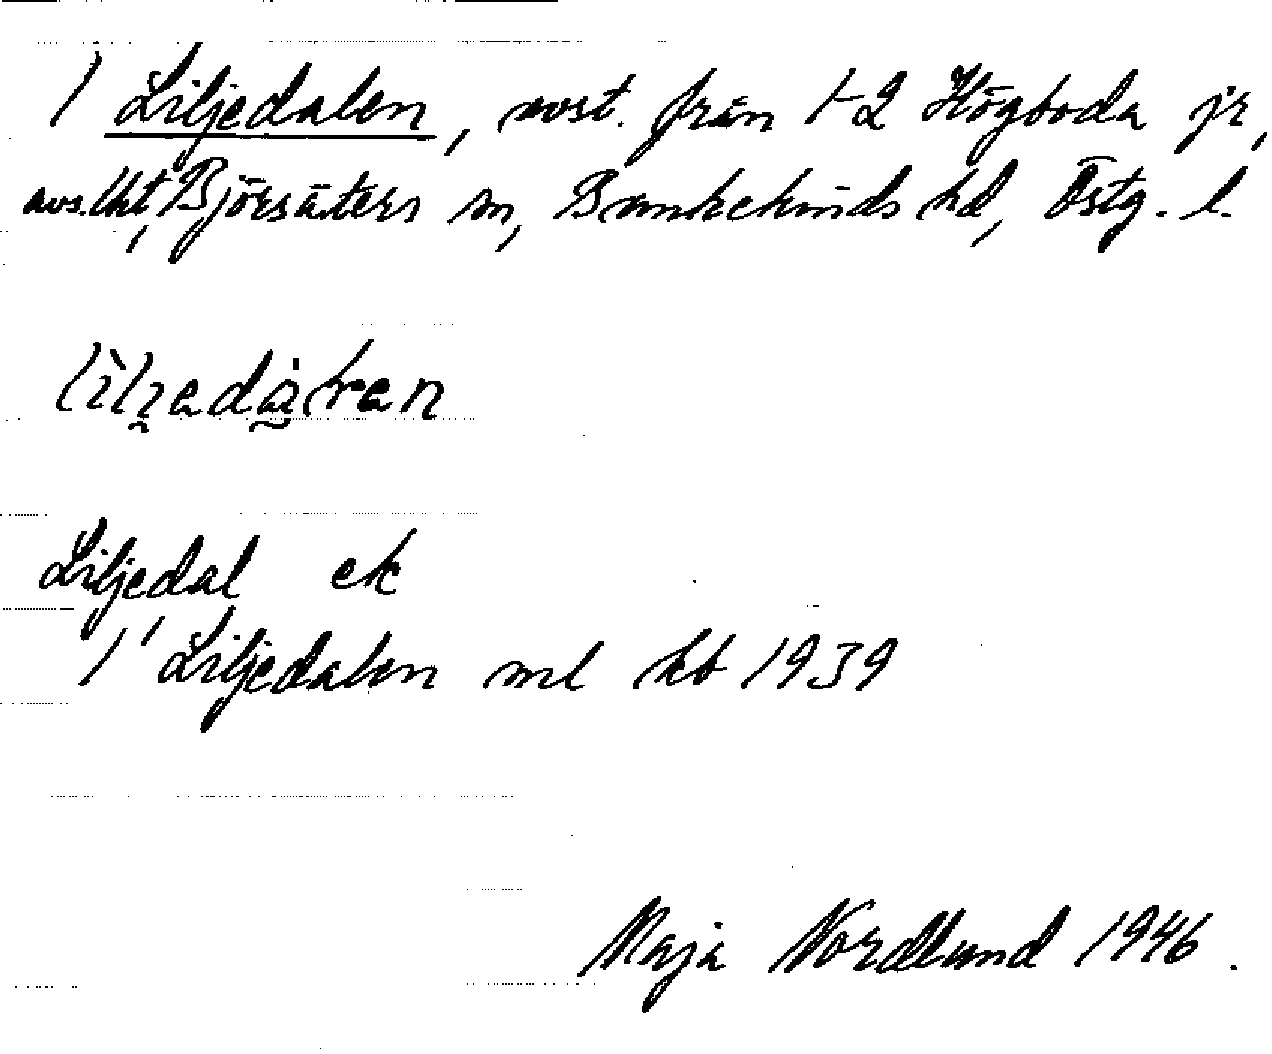 1 Liljedalen, avst. från 1-2 Högboda jr,
avs. lht, Björsäters sn, Bankekinds hd, Östg. l.
Liljedal ek
1 Liljedalen ml kb 1939
Maja Nordlund 1946.